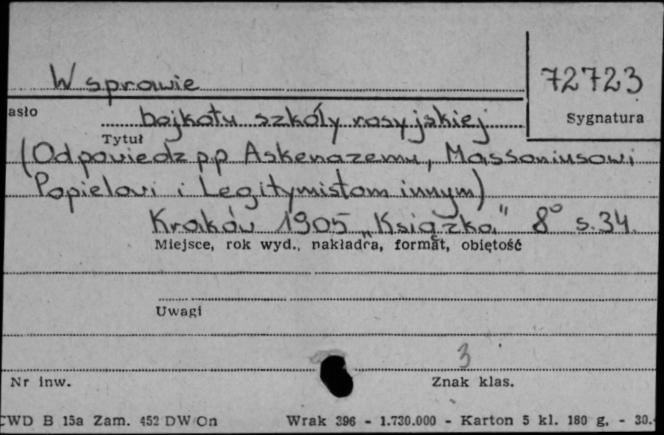 W sprawie
72723
asło
Sygnatura
bojkotu szkóły rosyjskiej
Tytuł
(Odpowiedz pp Askenazemu, Massoniusowi
Popielowi i Legitymistom innym)
Kraków 1905 „Książka" 8° s. 34.
Miejsce, rok wyd., nakładca, format, objętość
Uwagi
3
Nr inw.
Znak klas.
CWD B 15a Zam. 452 DW On Wrak 396 - 1.730.000 - Karton 5 kl. 180 g. - 30.